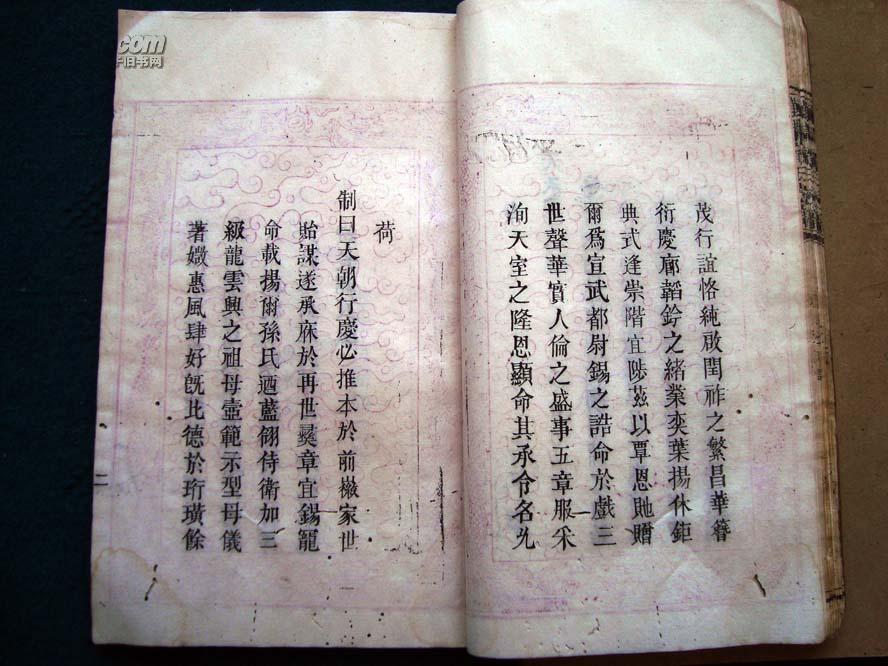 茂行誼恪純啟閏祚之繁昌華簪
衍慶廊韜鈐之緒業奕葉揚休鉅
典式逢崇階宜陟茲以覃恩貤贈
爾爲宣武都尉錫之誥命於戲三
世聲華實人倫之盛事五章服采
洵天室之隆恩顯命其承令名允
荷
制曰天朝行慶必推本於前徽家世
貽謀遂承庥於再世彞章宜錫寵
命載揚爾孫氏迺藍翎侍衛加三
級龍雲興之祖母壼範示型母儀
著媺惠風肆好旣比德於珩璜餘
二
.com
旧书网